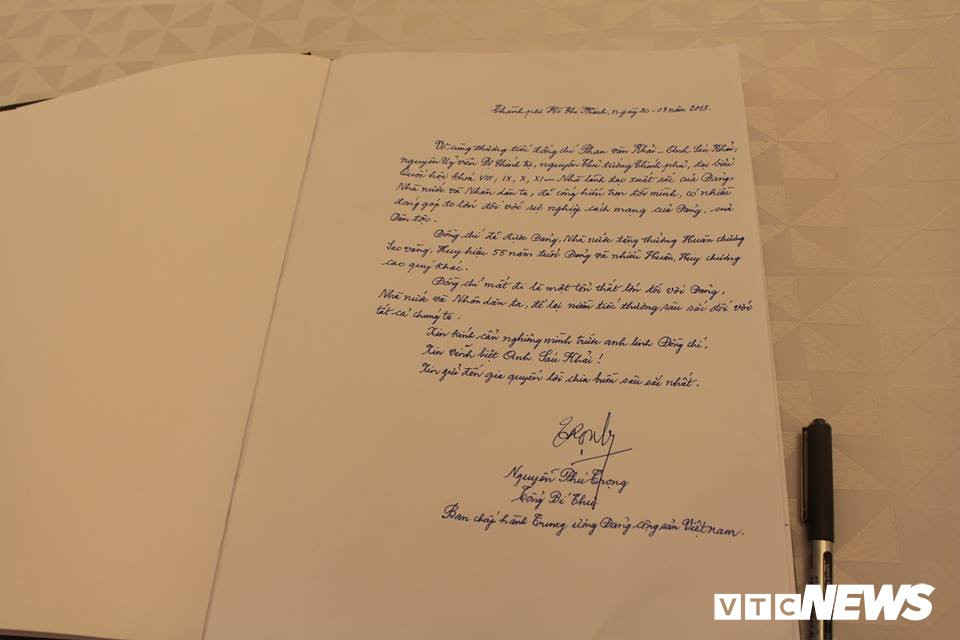 Thành phố Hồ Chí Minh, ngày 20-03 năm 2018.
Vô cùng thương tiếc đồng chí Phan Văn Khải - Anh Sáu Khải,
nguyên Uỷ viên Bộ Chính trị, nguyên Thủ tướng Chính phủ, đại biểu
Quốc hội khoá VIII, IX, X, XI - Nhà lãnh đạo xuất sắc của Đảng,
Nhà nước và Nhân dân ta, đã cống hiến trọn đời mình, có nhiều
đóng góp to lớn đối với sự nghiệp cách mạng của Đảng, của
Dân tộc.
Đồng chí đã được Đảng, Nhà nước tặng thưởng Huân chương
Sao vàng, Huy hiệu 55 năm tuổi Đảng và nhiều Huân, Huy chương
cao quý khác.
Đồng chí mất đi là một tổn thất lớn đối với Đảng,
Nhà nước và Nhân dân ta, để lại niềm tiếc thương sâu sắc đối với
tất cả chúng ta.
Xin kính cẩn nghiêng mình trước anh linh Đồng chí.
Xin vĩnh biệt Anh Sáu Khải!
Xin gửi đến gia quyến lời chia buồn sâu sắc nhất.
Nguyễn Phú Trọng
Tổng Bí Thư
Ban chấp hành Trung ương Đảng cộng sản Việt nam.
VTC NEWS